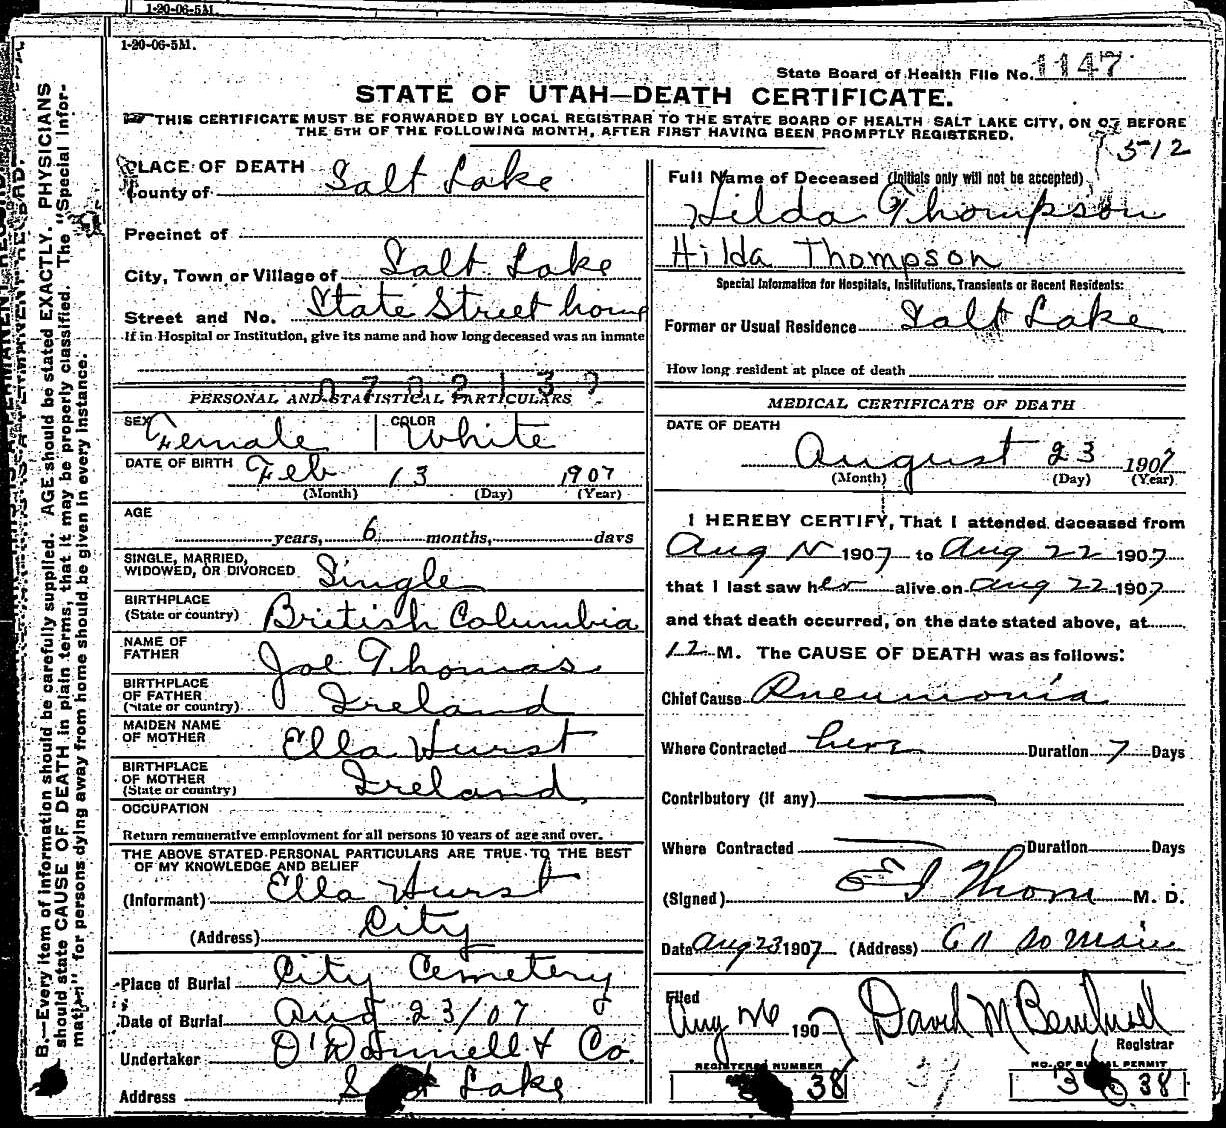 1-20-06-5M.
1-20-06-5M.
State Board of Health File No. 1147
STATE OF UTAH—DEATH CERTIFICATE.
THIS CERTIFICATE MUST BE FORWARDED BY LOCAL REGISTRAR TO THE STATE BOARD OF HEALTH SALT LAKE CITY, ON OR BEFORE
THE 5TH OF THE FOLLOWING MONTH, AFTER FIRST HAVING BEEN PROMPTLY REGISTERED.
512
PLACE OF DEATH
County of Salt Lake
Precinct of
City, Town or Village of Salt Lake
Street and No. State Street home
If in Hospital or Institution, give its name and how long deceased was an inmate
0702137
PERSONAL AND STATISTICAL PARTICULARS
SEX Female COLOR White
DATE OF BIRTH Feb 13 1907
(Month) (Day) (Year)
AGE
years, 6 months, days
SINGLE, MARRIED,
WIDOWED, OR DIVORCED Single
BIRTHPLACE
(State or country) British Columbia
NAME OF
FATHER Joe Thomas
BIRTHPLACE
OF FATHER
(State or country) Ireland
MAIDEN NAME
OF MOTHER Ella Hurst
BIRTHPLACE
OF MOTHER
(State or country) Ireland
OCCUPATION
Return remunerative employment for all persons 10 years of age and over.
THE ABOVE STATED PERSONAL PARTICULARS ARE TRUE TO THE BEST
OF MY KNOWLEDGE AND BELIEF
(Informant) Ella Hurst
(Address) City
Place of Burial City Cemetery
Date of Burial Aug 23/07
Undertaker O'Donnell & Co.
Address Salt Lake
Full Name of Deceased (Initials only will not be accepted)
Hilda Thompson
Hilda Thompson
Special Information for Hospitals, Institutions, Transients or Recent Residents:
Former or Usual Residence Salt Lake
How long resident at place of death
MEDICAL CERTIFICATE OF DEATH
DATE OF DEATH
August 23 1907
(Month) (Day) (Year)
I HEREBY CERTIFY, That I attended deceased from
Aug 1907 to Aug 22 1907
that I last saw her alive on Aug 22 1907
and that death occurred, on the date stated above, at
12 M. The CAUSE OF DEATH was as follows:
Chief Cause Pneumonia
Where Contracted here Duration 7 Days
Contributory (if any)
Where Contracted Duration Days
(Signed) M. D.
Date Aug 23 1907 (Address) 611 So Main
Filed
Aug 26 1907 David M
Registrar
REGISTERED NUMBER
38
NO. OF BURIAL PERMIT
3 38
B.—Every item of information should be carefully supplied. AGE should be stated EXACTLY. PHYSICIANS
should state CAUSE OF DEATH in plain terms, that it may be properly classified. The "Special Infor-
mation" for persons dying away from home should be given in every instance.